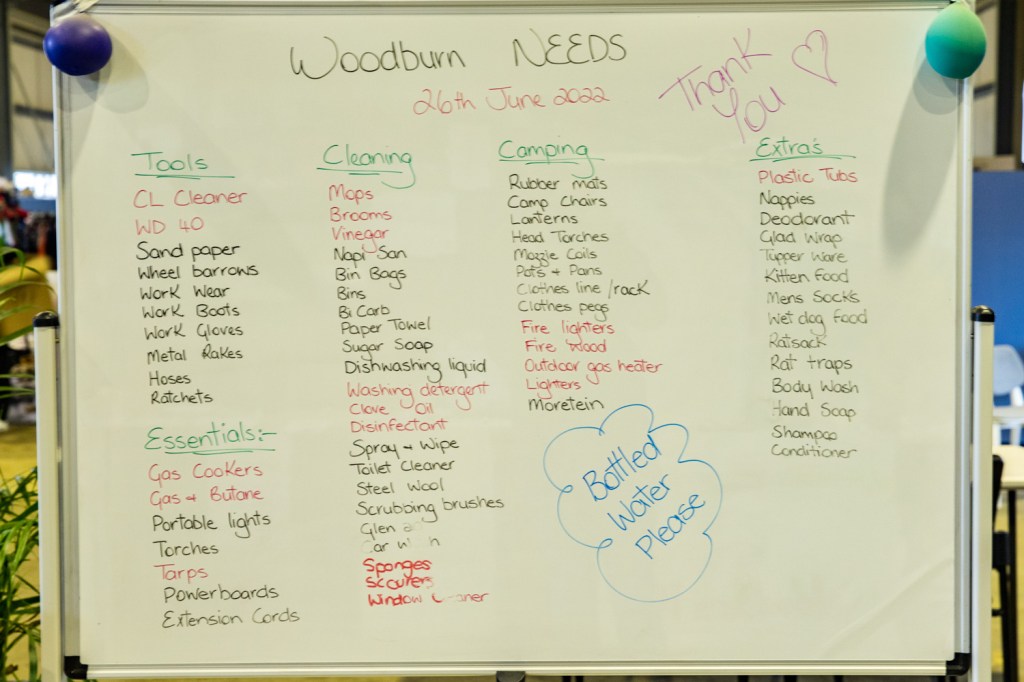 Woodburn NEEDS
26th June 2022
Thank
You
Tools
CL Cleaner
WD 40
Sand paper
Wheel barrows
Work Wear
Work Boots
Work Gloves
Metal Rakes
Hoses
Ratchets
Essentials:-
Gas Cookers
Gas + Butane
Portable lights
Torches
Tarps
Powerboards
Extension Cords
Cleaning
Mops
Brooms
Vinegar
Napi San
Bin Bags
Bins
Bi Carb
Paper Towel
Sugar Soap
Dishwashing liquid
Washing detergent
Clove Oil
Disinfectant
Spray + Wipe
Toilet Cleaner
Steel Wool
Scrubbing brushes
Glen
Sponges
Scourers
Window
Camping
Rubber mats
Camp Chairs
Lanterns
Head Torches
Mozzie Coils
Pots + Pans
Clothes line /rack
Clothes pegs
Fire lighters
Fire wood
Outdoor gas heater
Lighters
Moretein
Bottled
Water
Please
Extra's
Plastic Tubs
Nappies
Deodorant
Glad Wrap
Tupper Ware
Kitten food
Mens Socks
Wet dog food
Ratsack
Rat traps
Body Wash
Hand Soap
Shampoo
Conditioner